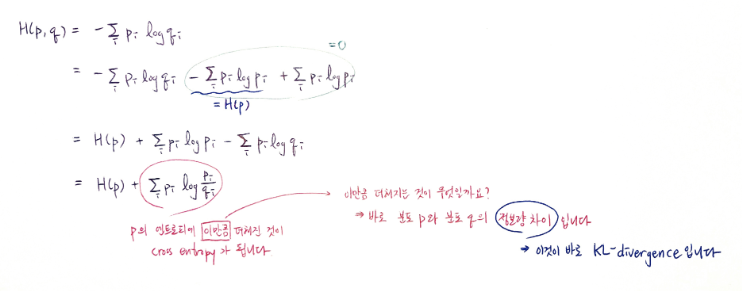 H(p,q) = - Σᵢ pᵢ log qᵢ
= 0
= - Σᵢ pᵢ log qᵢ - Σᵢ pᵢ log pᵢ + Σᵢ pᵢ log pᵢ
= H(p)
= H(p) + Σᵢ pᵢ log pᵢ - Σᵢ pᵢ log qᵢ
= H(p) + Σᵢ pᵢ log pᵢ/qᵢ
p의 엔트로피에 이만큼 더해진 것이
cross entropy가 됩니다
이만큼 더해지는 것이 무엇일까요?
⇒ 바로 분포 p와 분포 q의 정보량 차이 입니다
→ 이것이 바로 KL-divergence 입니다